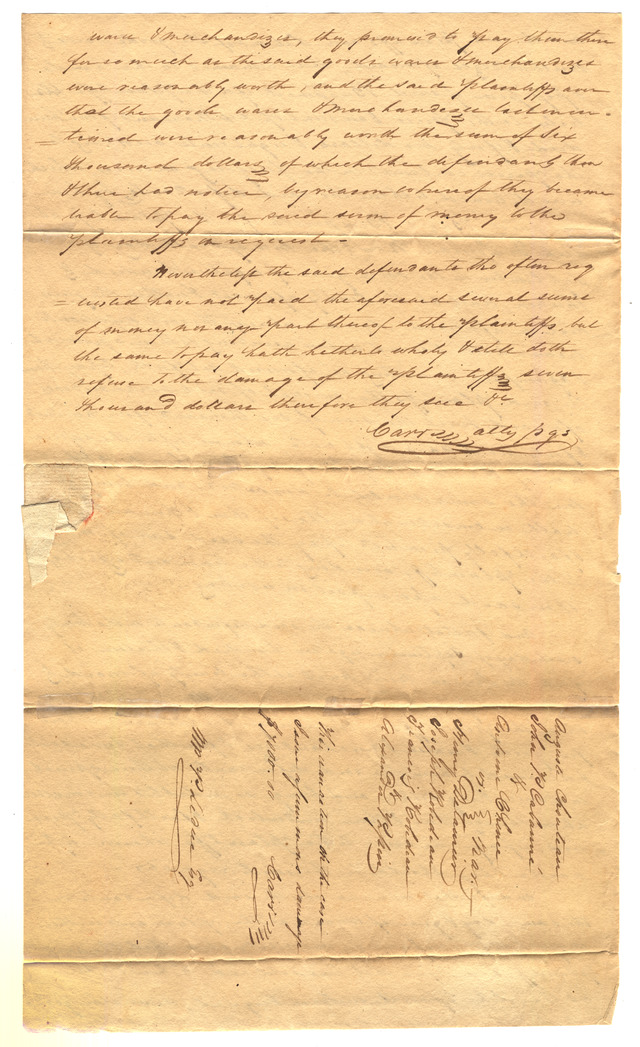 wares & merchandizes, they promised to pay them then
for so much as the said goods wares & merchandizes
were reasonably worth, and the said plaintiffs aver
that the goods wares & merchandizes last men-
=tioned were reasonably worth the sum of Six
thousand dollars, of which the defendants then
& there had notice, by reason whereof they became
liable to pay the said sum of money to the
plaintiffs on request.
Nevertheless the said defendants tho often req
=uested have not paid the aforesaid several sums
of money nor any part thereof to the plaintiffs, but
the same to pay hath hetherto wholy & still doth
refuse to the damage of the plaintiffs seven
thousand dollars therefore they sue &c
Carr atty pqs
Auguste Chouteau
John P Cabanné
&
Antoine Chenie
vs. Nar.
Henry Delaurier
Joseph Robidou
Francis Robidou
&
Alexander Papin
This causes on the case
Issue a summons damage
$7000.00 Carr